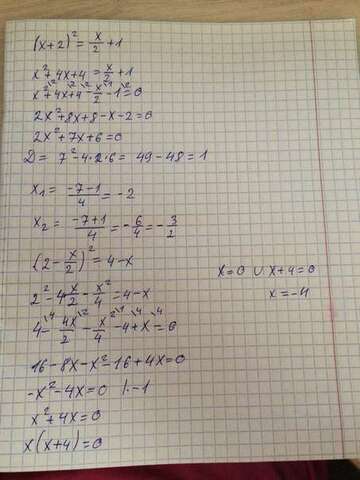 (x+2)² = x/2 + 1
x²+4x+4 = x/2 + 1
x²\² + 4x\² + 4\² - x/2\¹ - 1\² = 0
2x²+8x+8-x-2=0
2x²+7x+6=0
D = 7²-4·2·6 = 49-48 = 1
x₁ = (-7-1)/4 = -2
x₂ = (-7+1)/4 = -6/4 = -3/2
(2 - x/2)² = 4-x
2² - 4x/2 - x²/4 = 4-x
4\⁴ - 4x/2\² - x²/4\¹ - 4\⁴ + x\⁴ = 0
16-8x-x²-16+4x=0
-x²-4x=0 |·-1
x²+4x=0
x(x+4)=0
x=0 ∪ x+4=0
x=-4